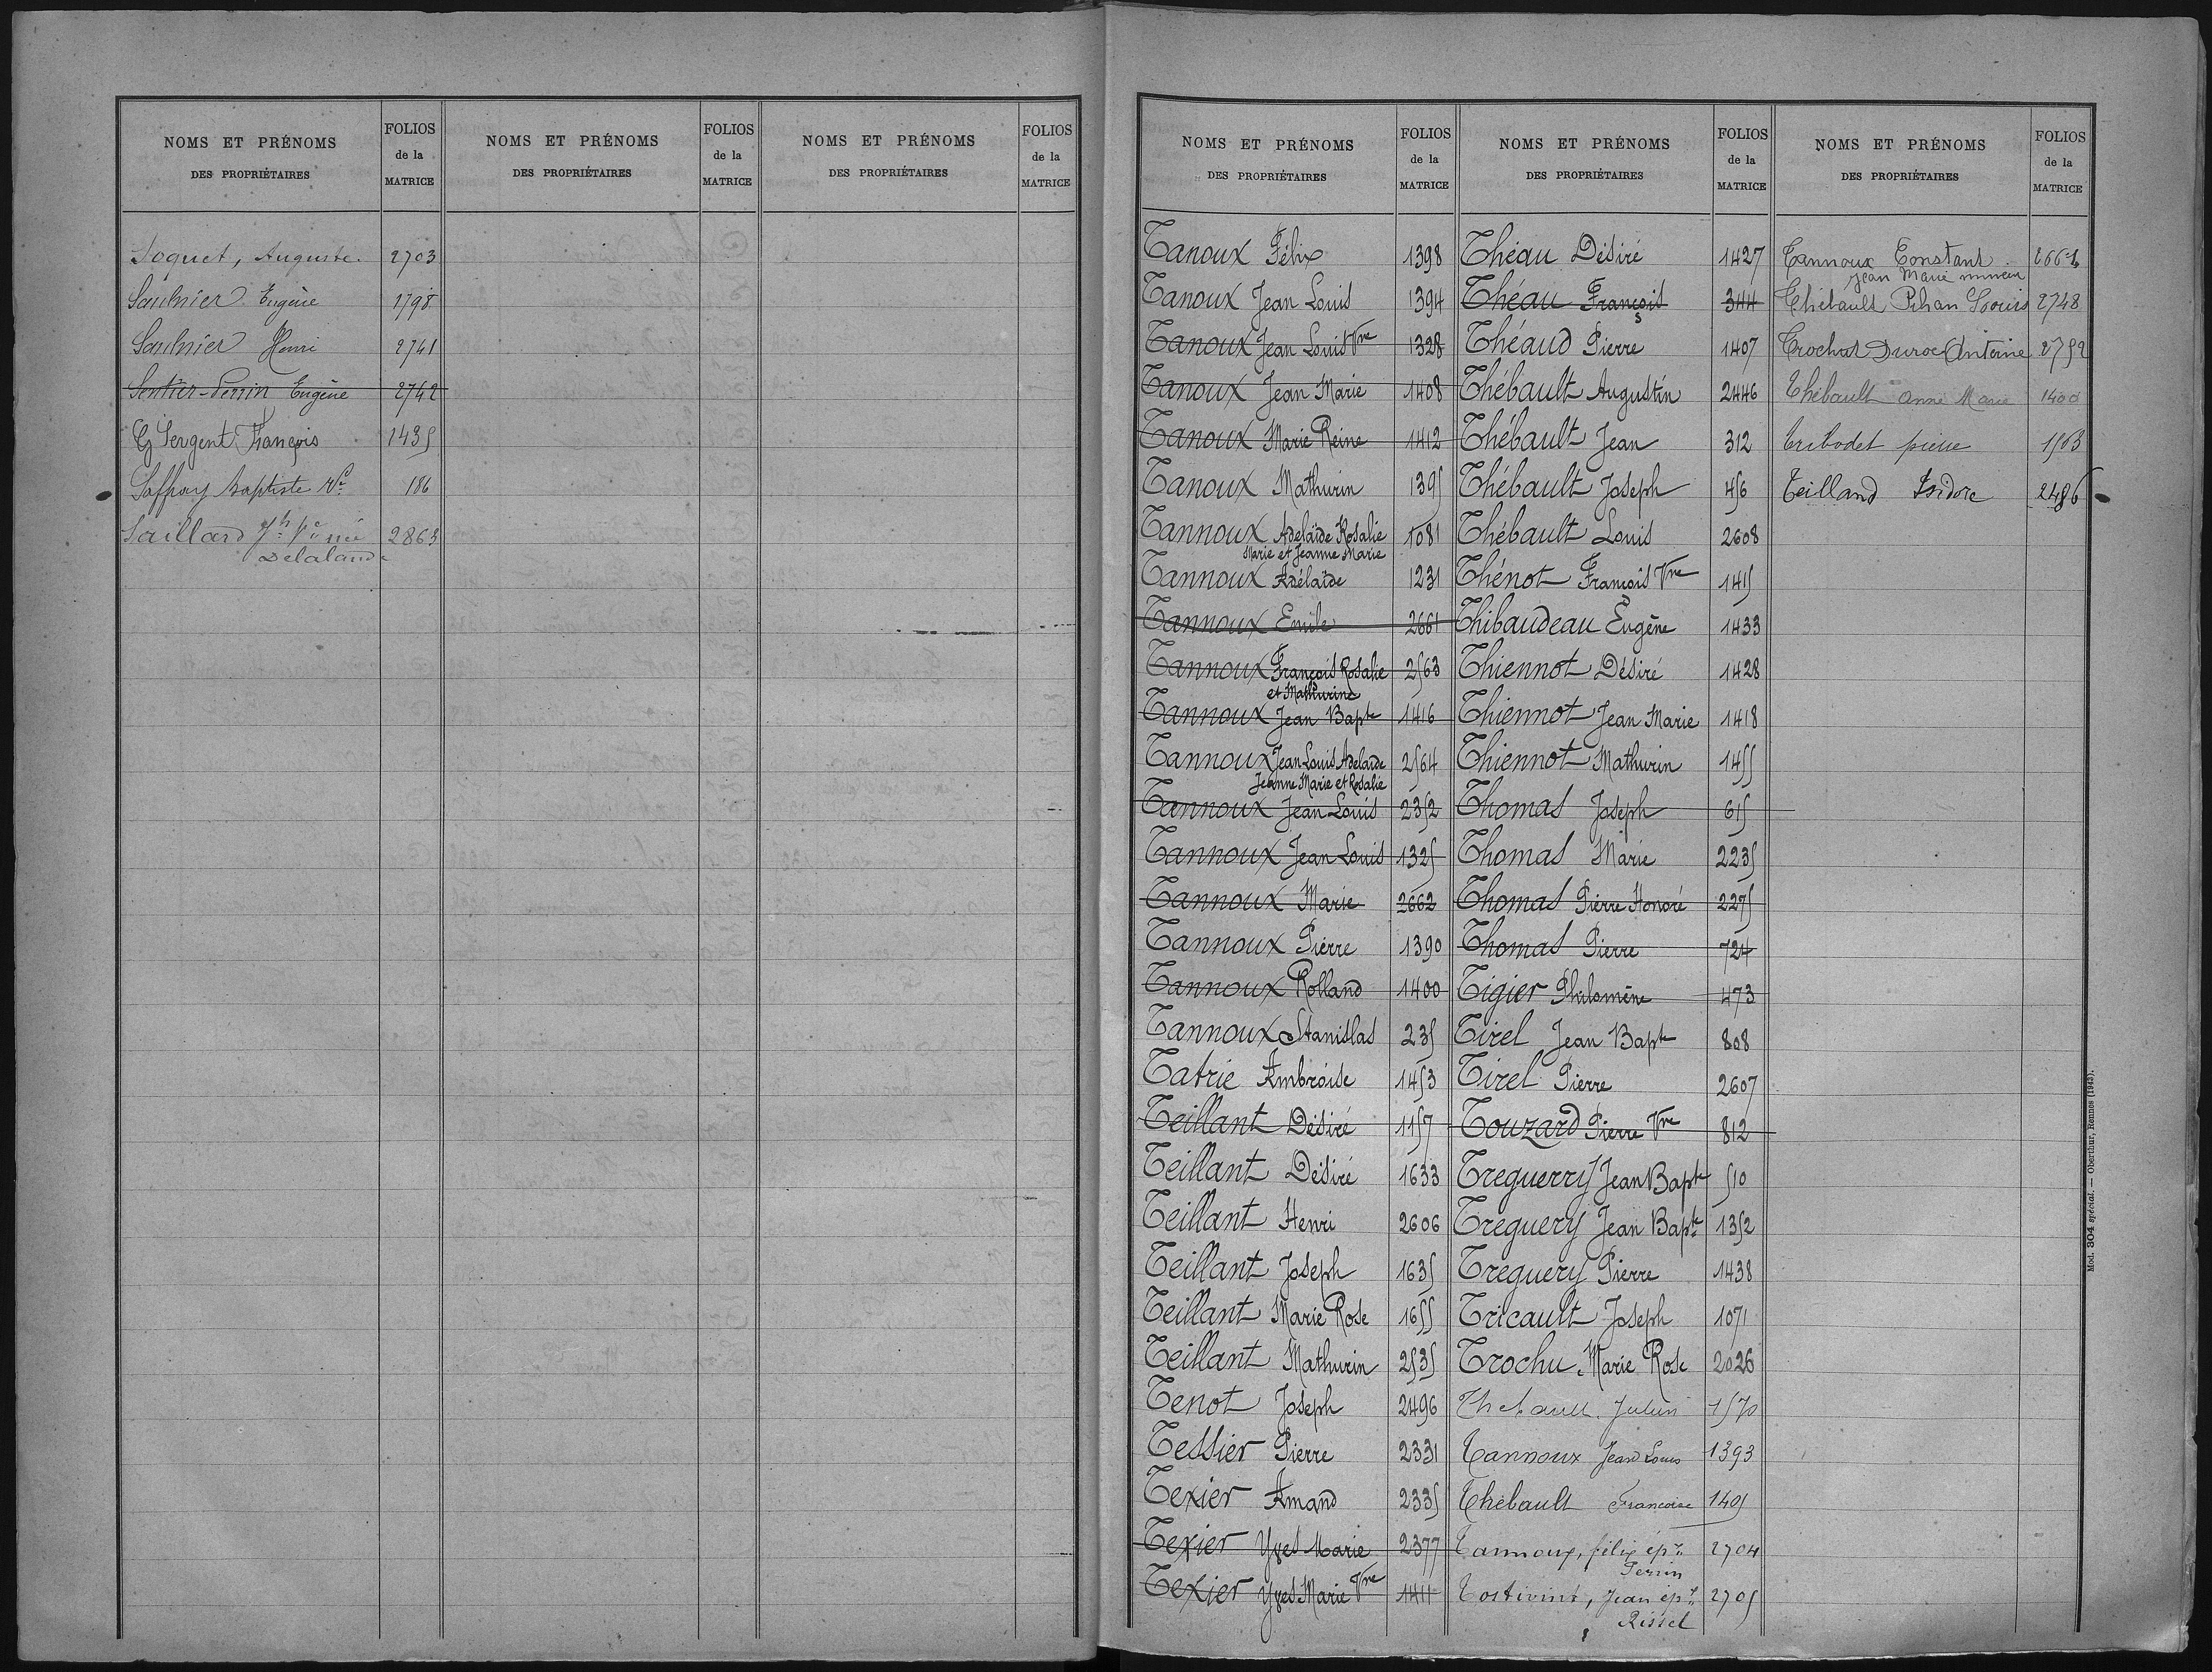 NOMS ET PRÉNOMS
DES PROPRIÉTAIRES
FOLIOS
de la
MATRICE
NOMS ET PRÉNOMS
DES PROPRIÉTAIRES
FOLIOS
de la
MATRICE
NOMS ET PRÉNOMS
DES PROPRIÉTAIRES
FOLIOS
de la
MATRICE
Soquet, Auguste. 2703
Saulnier Eugène 1798
Saulnier Henri 2741
Sentier-Perrin Eugène 2742
Sergent François 1435
Saffray Baptiste Ve 186
Saillard Jh Ve née 2863
Delalande
NOMS ET PRÉNOMS
DES PROPRIÉTAIRES
FOLIOS
de la
MATRICE
NOMS ET PRÉNOMS
DES PROPRIÉTAIRES
FOLIOS
de la
MATRICE
NOMS ET PRÉNOMS
DES PROPRIÉTAIRES
FOLIOS
de la
MATRICE
Tanoux Félix 1398
Tanoux Jean Louis 1394
Tanoux Jean Louis Vve 1328
Tanoux Jean Marie 1408
Tanoux Marie Reine 1412
Tanoux Mathurin 1395
Tannoux Adelaïde Rosalie 1081
Marie et Jeanne Marie
Tannoux Adélaïde 1231
Tannoux Emile 2661
Tannoux François Rosalie 2563
et Mathurine
Tannoux Jean Bapte 1416
Tannoux Jean Louis Adelaïde 2564
Jeanne Marie et Rosalie
Tannoux Jean Louis 2352
Tannoux Jean Louis 1325
Tannoux Marie 2662
Tannoux Pierre 1390
Tannoux Rolland 1400
Tannoux Stanislas 235
Tatrie Ambroise 1453
Teillant Désiré 1157
Teillant Désiré 1633
Teillant Henri 2606
Teillant Joseph 1635
Teillant Marie Rose 1655
Teillant Mathurin 2535
Tenot Joseph 2496
Tessier Pierre 2331
Texier Amand 2335
Texier Yves Marie 2377
Texier Yves Marie Vve 1411
Théau Désiré 1427
Théau François 344
Théaud Pierre 1407
Thébault Augustin 2446
Thébault Jean 312
Thébault Joseph 456
Thébault Louis 2608
Thénot François Vve 1415
Thibaudeau Eugène 1433
Thiennot Désiré 1428
Thiennot Jean Marie 1418
Thiennot Mathurin 1455
Thomas Joseph 615
Thomas Marie 2235
Thomas Pierre Honoré 2275
Thomas Pierre 724
Tigier Philomène 473
Tirel Jean Bapte 808
Tirel Pierre 2607
Touzard Pierre Vve 812
Treguerry Jean Bapte 510
Treguery Jean Bapte 1352
Treguery Pierre 1438
Tricault Joseph 1071
Trochu Marie Rose 2026
Thebault Julien 1570
Tannoux Jean Louis 1393
Thébault Françoise 1405
Tannoux, félix épx 2704
Perrin
Tostivint, Jean épx 2705
Rissel
Tannoux Constant
Jean Marie mineur
Thébault Pihan Louis 2748
Trochut Duroc Antoine 2752
Thébault Anne Marie 1400
Tribodet pierre 1563
Teilland Isidore 2486
Mod. 304 spécial. — Oberthur, Rennes (1943).